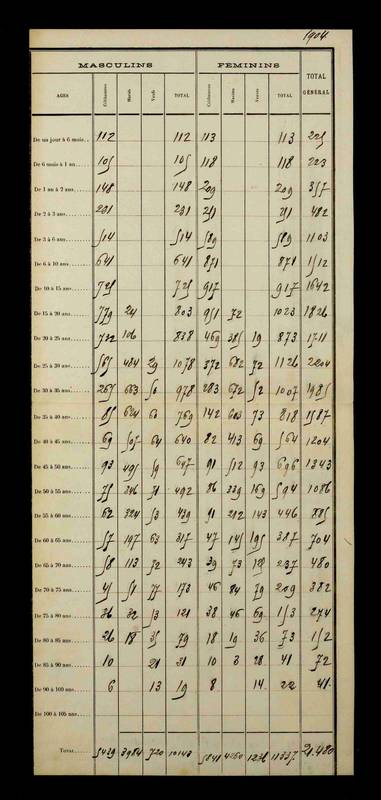 1904
MASCULINS FEMININS TOTAL GÉNÉRAL
AGES Célibataires Mariés Veufs TOTAL Célibataires Mariées Veuves TOTAL
De un jour à 6 mois 112 112 113 113 225
De 6 mois à 1 an 105 105 118 118 223
De 1 an à 2 ans 148 148 209 209 357
De 2 à 3 ans 231 231 251 251 482
De 3 à 6 ans 514 514 589 589 1103
De 6 à 10 ans 641 641 871 871 1512
De 10 à 15 ans 725 725 917 917 1642
De 15 à 20 ans 779 24 803 951 72 1023 1826
De 20 à 25 ans 732 106 838 469 385 19 873 1711
De 25 à 30 ans 565 484 29 1078 372 682 72 1126 2204
De 30 à 35 ans 265 663 50 978 283 672 52 1007 1985
De 35 à 40 ans 85 624 60 769 142 603 73 818 1587
De 40 à 45 ans 69 507 64 640 82 413 69 564 1204
De 45 à 50 ans 93 495 59 647 91 512 93 696 1343
De 50 à 55 ans 75 346 71 492 86 339 169 594 1086
De 55 à 60 ans 62 324 53 439 91 212 143 446 885
De 60 à 65 ans 57 197 63 317 47 145 195 387 704
De 65 à 70 ans 58 113 72 243 39 73 125 237 480
De 70 à 75 ans 45 51 77 173 46 84 79 209 382
De 75 à 80 ans 36 32 53 121 38 46 69 153 274
De 80 à 85 ans 26 18 35 79 18 19 36 73 152
De 85 à 90 ans 10 21 31 10 3 28 41 72
De 90 à 100 ans 6 13 19 8 14 22 41
De 100 à 105 ans
TOTAL 5439 3984 720 10143 5841 4260 1236 11337 21.480